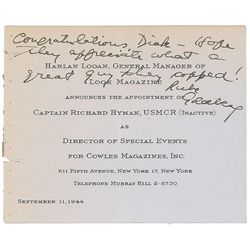 Congratulations, Dick - Hope
they appreciate what a
great guy they copped!
Rube
Goldberg
Harlan Logan, General Manager of
Look Magazine
announces the appointment of
Captain Richard Hyman, USMCR (Inactive)
as
Director of Special Events
for Cowles Magazines, Inc.
511 Fifth Avenue, New York 17, New York
Telephone Murray Hill 2-8730
September 11, 1944